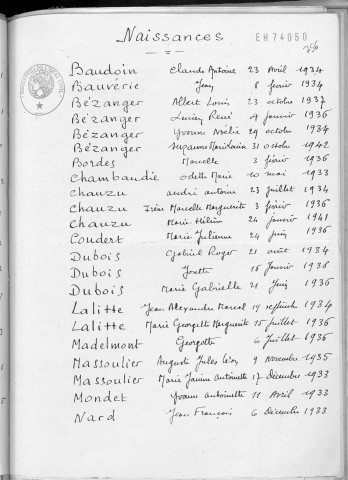 Naissances
EH74050
Baudoin Claude Antoine 23 Avril 1934
Bauverie Jean 8 février 1934
Bézanger Albert Louis 23 octobre 1937
Bézanger Lucien René 4 janvier 1936
Bézanger Yvonne Noélie 29 octobre 1934
Bézanger Suzanne Marie Louise 31 octobre 1942
Bordes Marcelle 3 février 1936
Chambaudie Odette Marie 10 mai 1933
Chauzu andré antoine 23 juillet 1934
Chauzu Irène Marcelle Marguerite 3 février 1936
Chauzu Marie Hélène 24 janvier 1941
Coudert Marie Julienne 24 juin 1936
Dubois Gabriel Roger 21 août 1934
Dubois Josette 15 Janvier 1938
Dubois Marie Gabrielle 21 Juin 1936
Lalitte Jean Alexandre Marcel 19 septembre 1934
Lalitte Marie Georgette Marguerite 15 juillet 1936
Madelmont Georgette 6 Juillet 1936
Massoulier Auguste Jules Léon 9 Novembre 1935
Massoulier Marie Janine Antoinette 17 Décembre 1933
Mondet Yvonne Antoinette 11 Avril 1933
Nard Jean François 6 Décembre 1933